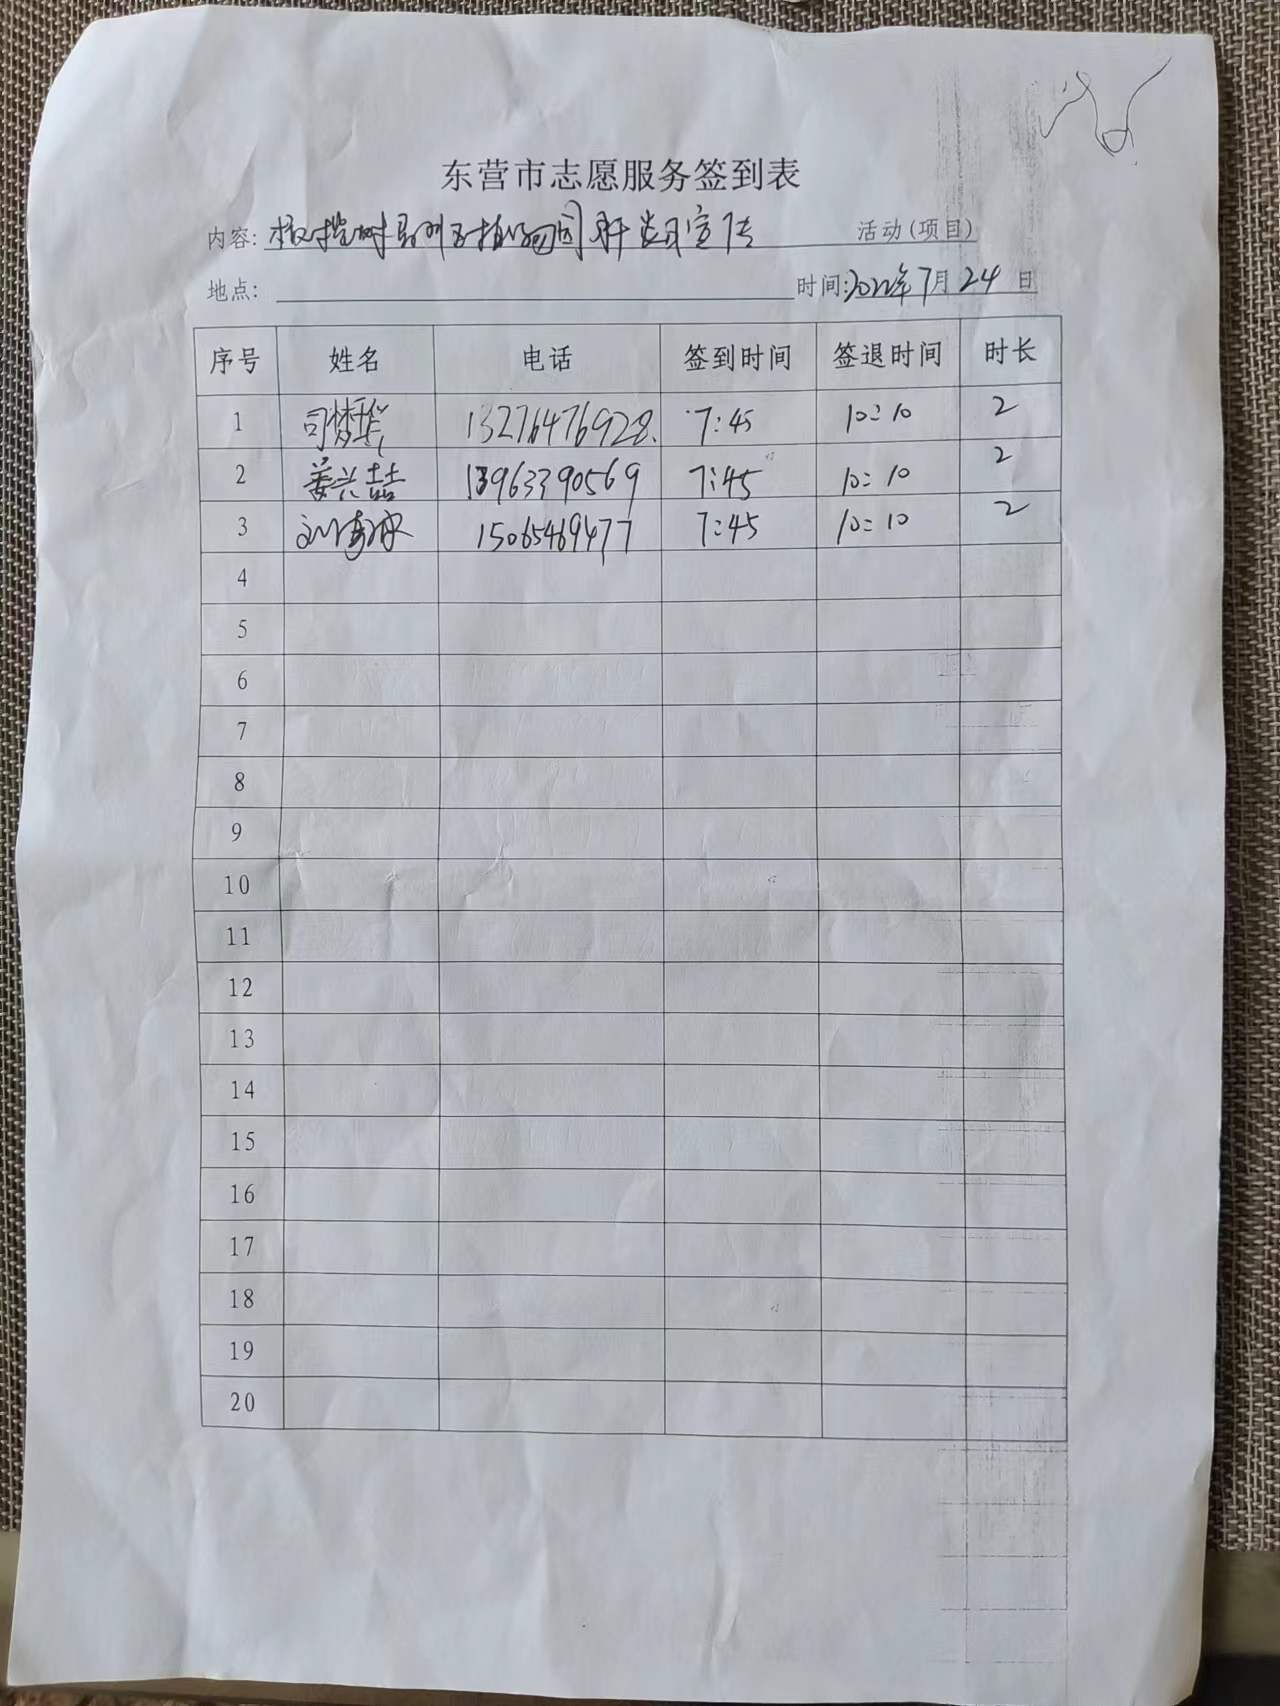 东营市志愿服务签到表
内容: 橄榄树 植物园肝炎日宣传 活动(项目)
地点: 时间:2022年7月24日
序号 姓名 电话 签到时间 签退时间 时长
1 司梦华 13276476928. 7:45 10:10 2
2 姜兴喆 13963390569 7:45 10:10 2
3 刘 15065469477 7:45 10:10 2
4
5
6
7
8
9
10
11
12
13
14
15
16
17
18
19
20